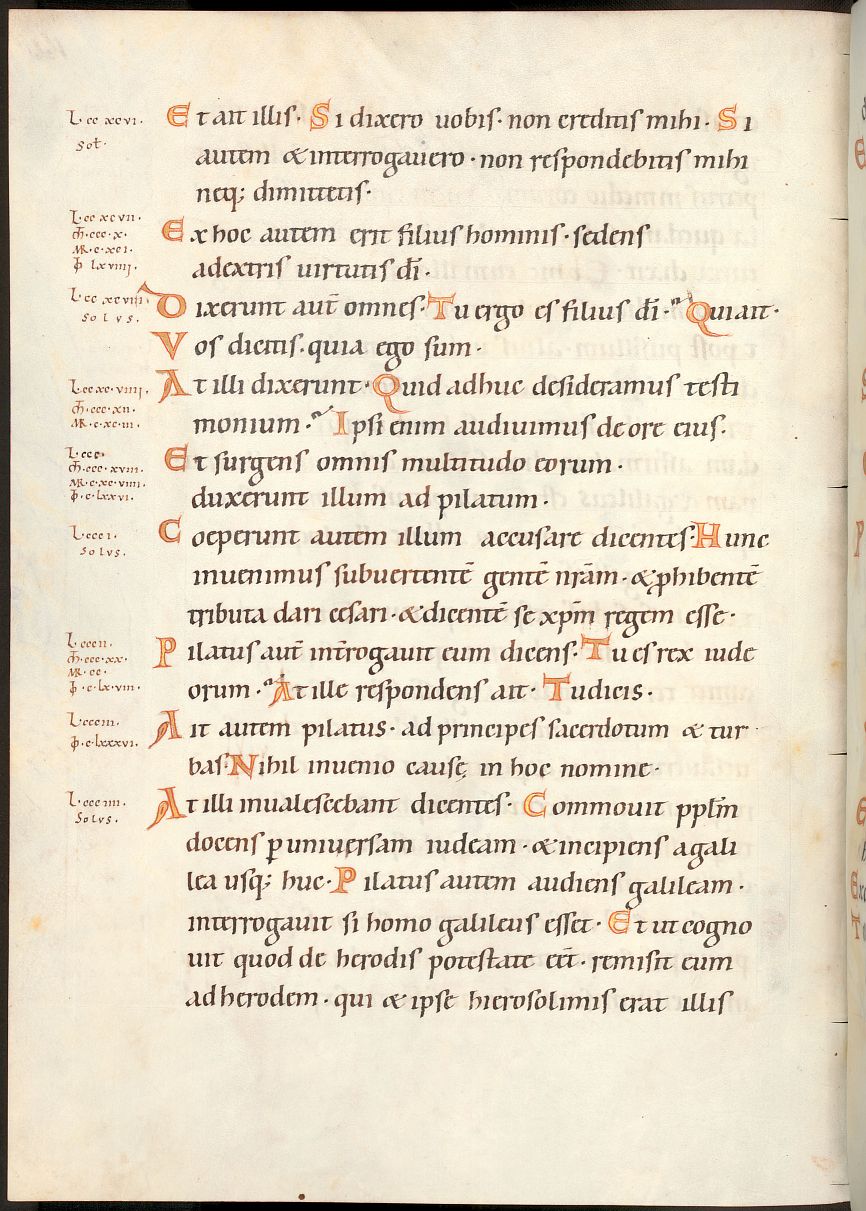 L·cc xcvi·
Sol·
Et ait illis· Si dixero uobis· non creditis mihi· Si
autem & interrogauero· non respondebitis mihi
neq; dimittetis·
L·cc xcvii·
M̄·ccc·x·
MR·c·xci·
Ex hoc autem erit filius hominis· sedens
adextris uirtutis dī·
L·cc xcviii·
SOLVS·
Dixerunt aut̄ omnes· Tu ergo es filius dī·? Qui ait·
Vos dicitis· quia ego sum·
L·cc xc·viiii·
M̄·ccc·xii·
MR·c·xciii·
At illi dixerunt· Quid adhuc desideramus testi
monium·? Ipsi enim audiuimus de ore eius·
L·ccc·
M̄·ccc·xviii·
MR·c·xc·viiii·
p̄·c·lxxvi·
Et surgens omnis multitudo eorum·
duxerunt illum ad pilatum·
L·ccc i·
Solvs·
Coeperunt autem illum accusare dicentes· Hunc
inuenimus subuertentē gentē nr̄am· & ꝓhibentē
tributa dari cesari· & dicentē se xp̄m regem esse·
L·ccc ii·
M̄·ccc·xx·
MR·cc·
p̄·c·lx·viii·
Pilatus aut̄ int̄rogauit eum dicens· Tu es rex iude
orum·? At ille respondens ait· Tu dicis·
L·ccc iii·
p̄·c·lxxxvi·
Ait autem pilatus· ad principes sacerdotum & tur
bas· Nihil inuenio causę in hoc nomine·
L·ccc iiii·
Solvs·
At illi inualescebant dicentes· Commouit pp̄lm
docens ꝑ uniuersam iudeam· & incipiens a gali
lea usq; huc· Pilatus autem audiens galileam·
interrogauit si homo galileus esset· Et ut cogno
uit quod de herodis potestate eēt· remisit eum
ad herodem· qui & ipse hierosolimis erat illis